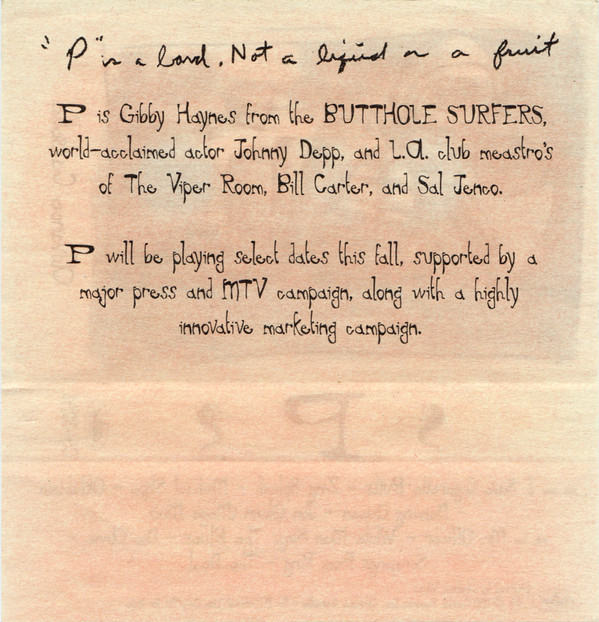 "P" is a band, Not a liquid or a fruit
P is Gibby Haynes from the BUTTHOLE SURFERS,
world-acclaimed actor Johnny Depp, and L.A. club meastro's
of The Viper Room, Bill Carter, and Sal Jenco.
P will be playing select dates this fall, supported by a
major press and MTV campaign, along with a highly
innovative marketing campaign.